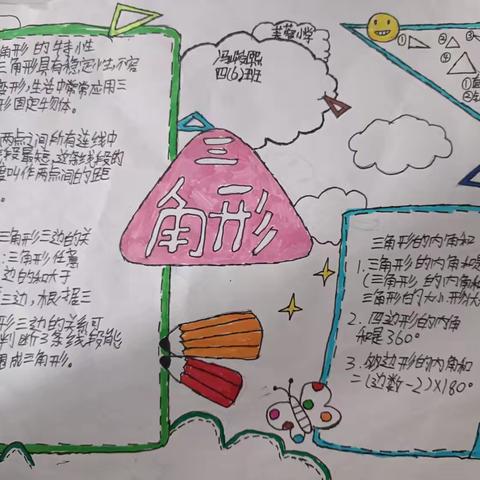 芙蓉小学
四(6)班
三
角形
角形的特性
三角形具有稳定性,不容
变形,生活中常常应用三
形固定物体。
两点之间所有连线中
线段最短,这条线段的
度叫作两点间的距
。
三角形三边的关
:三角形任意
边的和大于
三边,根据三
形三边的关系可
判断3条线段能
围成三角形。
① ② ③
④
三角形的内角和
1.三角形的内角和是
(三角形的内角和
三角形的大小形状
2.四边形的内角
和是360°
3.多边形的内角和
=(边数-2)×180°